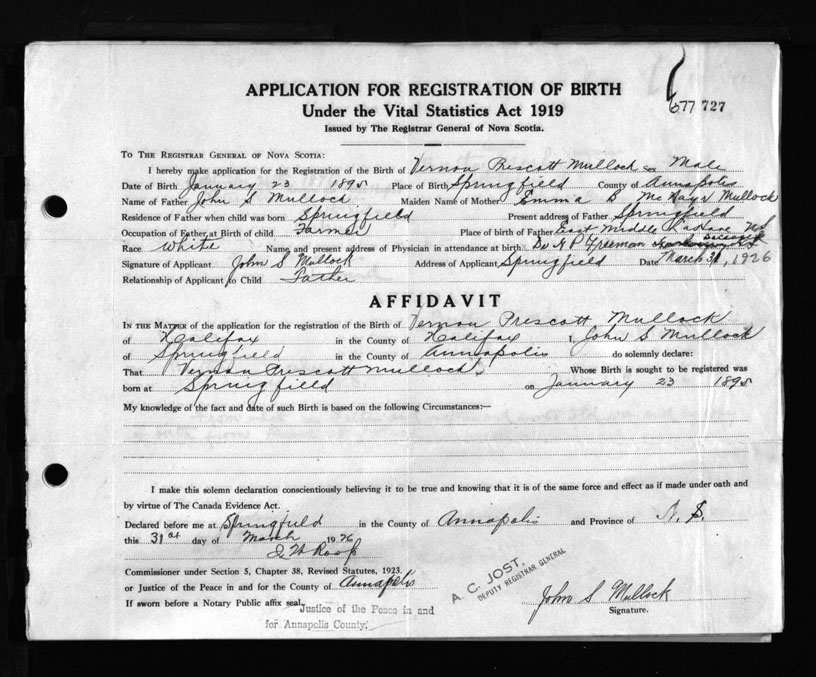 APPLICATION FOR REGISTRATION OF BIRTH
Under the Vital Statistics Act 1919
Issued by The Registrar General of Nova Scotia.
677 727
TO THE REGISTRAR GENERAL OF NOVA SCOTIA:
I hereby make application for the Registration of the Birth of Vernon Prescott Mullock sex Male
Date of Birth January 23 1895 Place of Birth Springfield County of Annapolis
Name of Father John S Mullock Maiden Name of Mother Emma B Mullock
Residence of Father when child was born Springfield Present address of Father Springfield
Occupation of Father at Birth of child Farmer Place of birth of Father East Middle NS
Race White Name and present address of Physician in attendance at birth Dr Freeman Deceased
Signature of Applicant John S Mullock Address of Applicant Springfield Date March 31, 1926
Relationship of Applicant to Child Father
AFFIDAVIT
IN THE MATTER of the application for the registration of the Birth of Vernon Prescott Mullock
of Halifax in the County of Halifax I, John S Mullock
of Springfield in the County of Annapolis do solemnly declare:
That Vernon Prescott Mullock Whose Birth is sought to be registered was
born at Springfield on January 23 1895
My knowledge of the fact and date of such Birth is based on the following Circumstances:—
I make this solemn declaration conscientiously believing it to be true and knowing that it is of the same force and effect as if made under oath and
by virtue of The Canada Evidence Act.
Declared before me at Springfield in the County of Annapolis and Province of N. S.
this 31st day of March 1926
Roop
Commissioner under Section 5, Chapter 38, Revised Statutes, 1923.
or Justice of the Peace in and for the County of Annapolis
If sworn before a Notary Public affix seal.
Justice of the Peace in and
for Annapolis County.
A. C. JOST,
DEPUTY REGISTRAR GENERAL
John S Mullock
Signature.